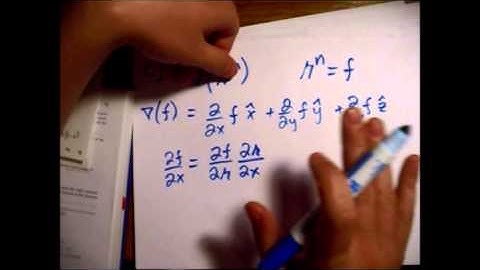 rⁿ = f
∇(f) = ∂/∂x f x̂ + ∂/∂y f ŷ + ∂ f ẑ
∂f/∂x = ∂f/∂r ∂r/∂x